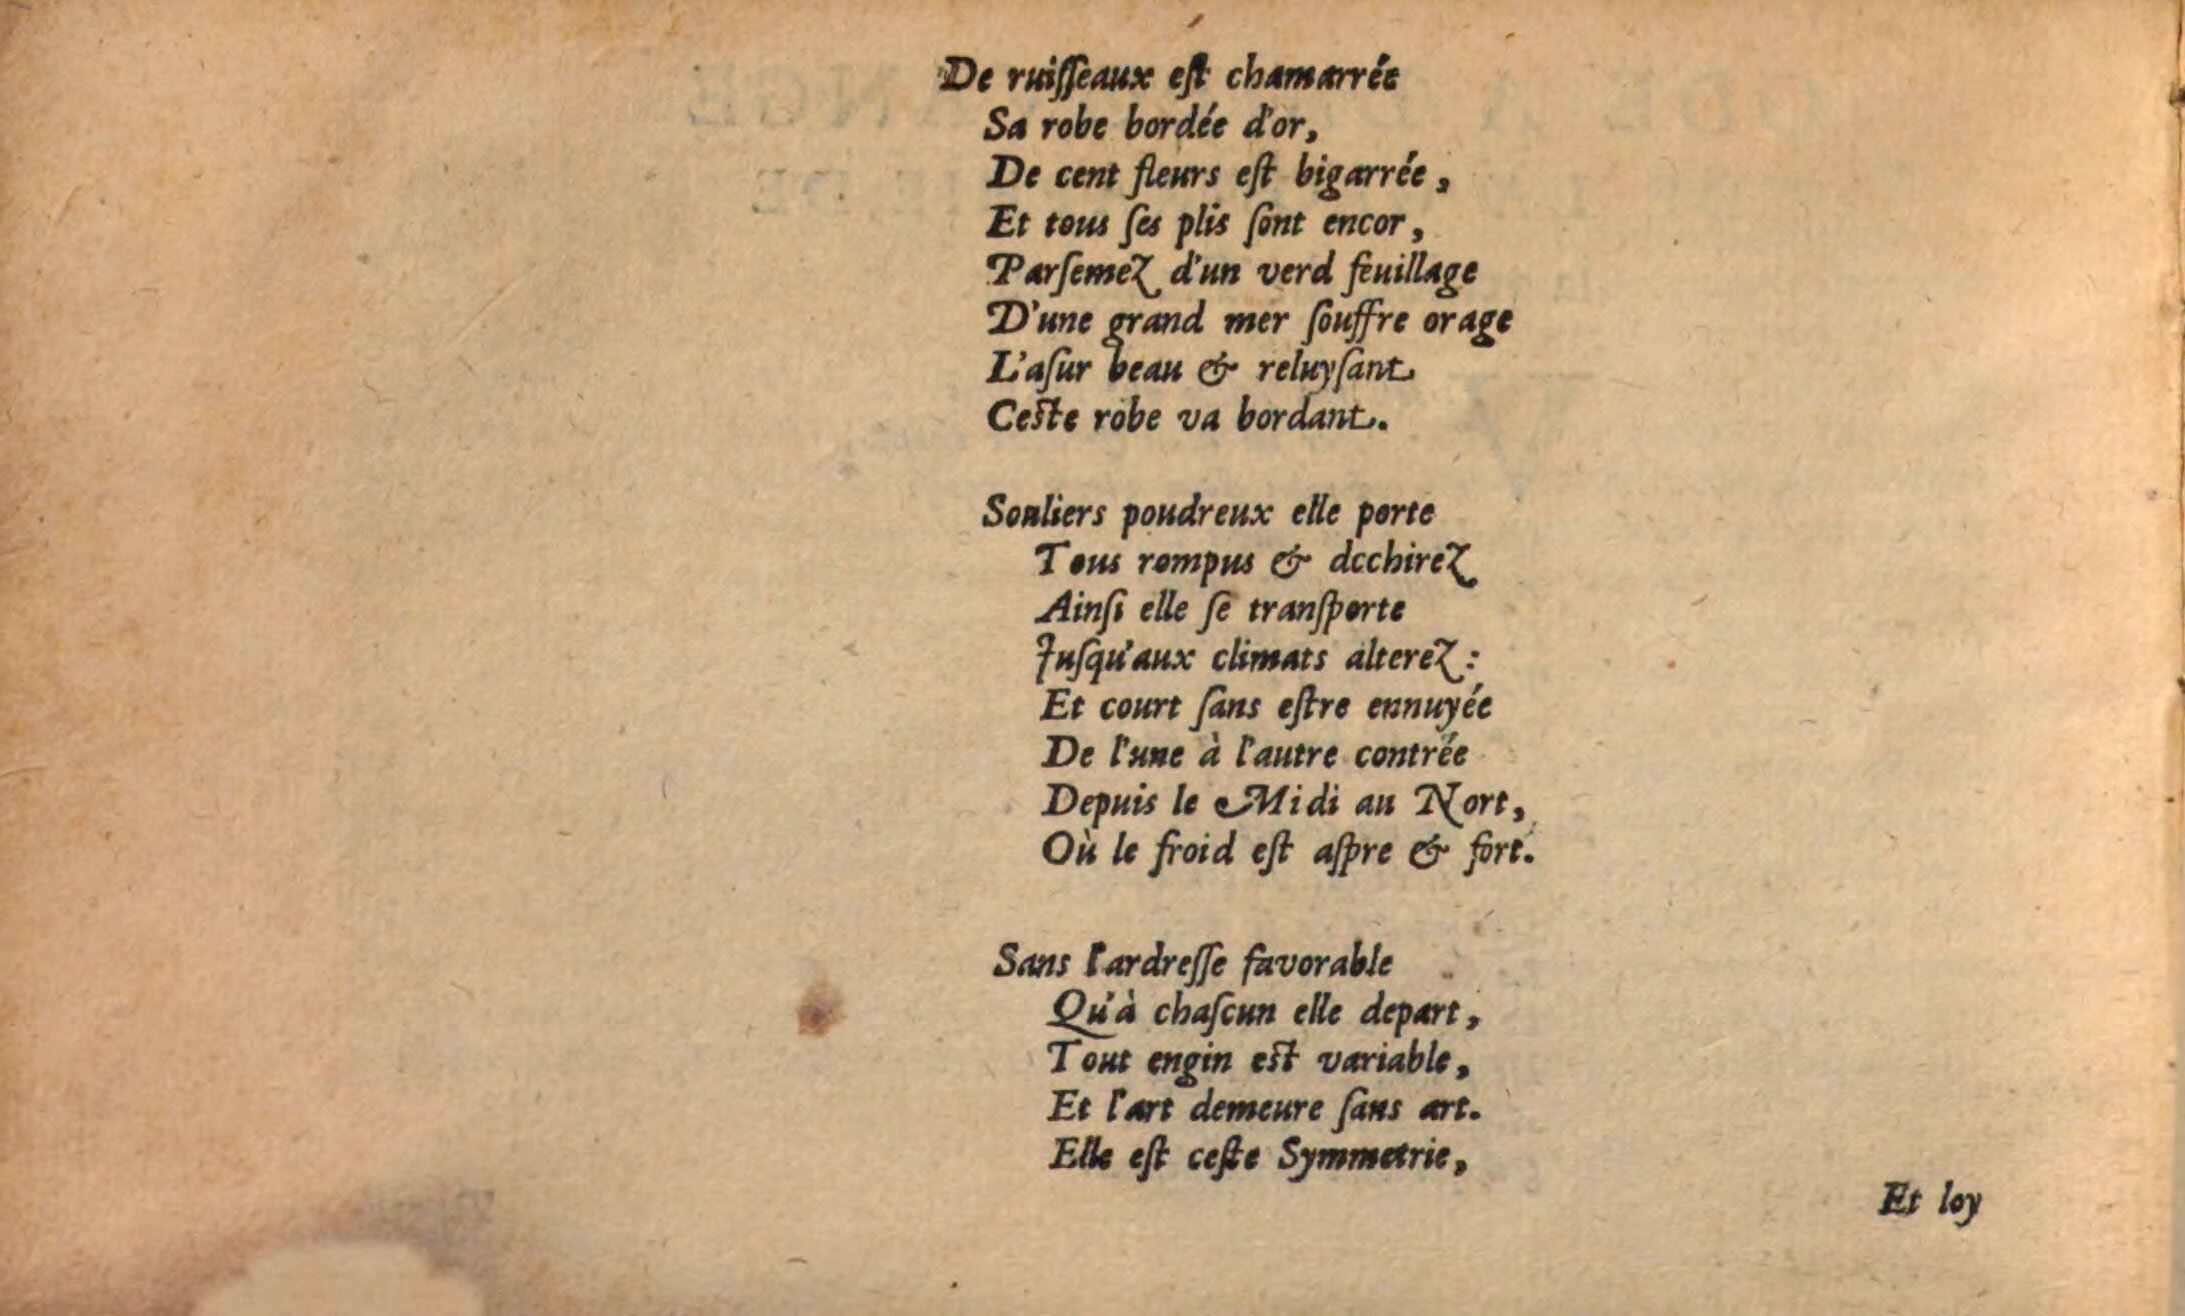 De ruiſſeaux eſt chamarrée
Sa robe bordée d'or,
De cent fleurs eſt bigarrée,
Et tous ſes plis ſont encor,
Parſemez d'un verd feuillage
D'une grand mer ſouffre orage
L'aſur beau & reluyſant
Ceſte robe va bordant.
Souliers poudreux elle porte
Tous rompus & dcchirez
Ainſi elle ſe tranſporte
Juſqu'aux climats alterez:
Et court ſans eſtre ennuyée
De l'une à l'autre contrée
Depuis le Midi au Nort,
Où le froid eſt aſpre & fort.
Sans l'ardreſſe favorable
Qu'à chaſcun elle depart,
Tout engin eſt variable,
Et l'art demeure ſans art.
Elle eſt ceſte Symmetrie,
Et loy